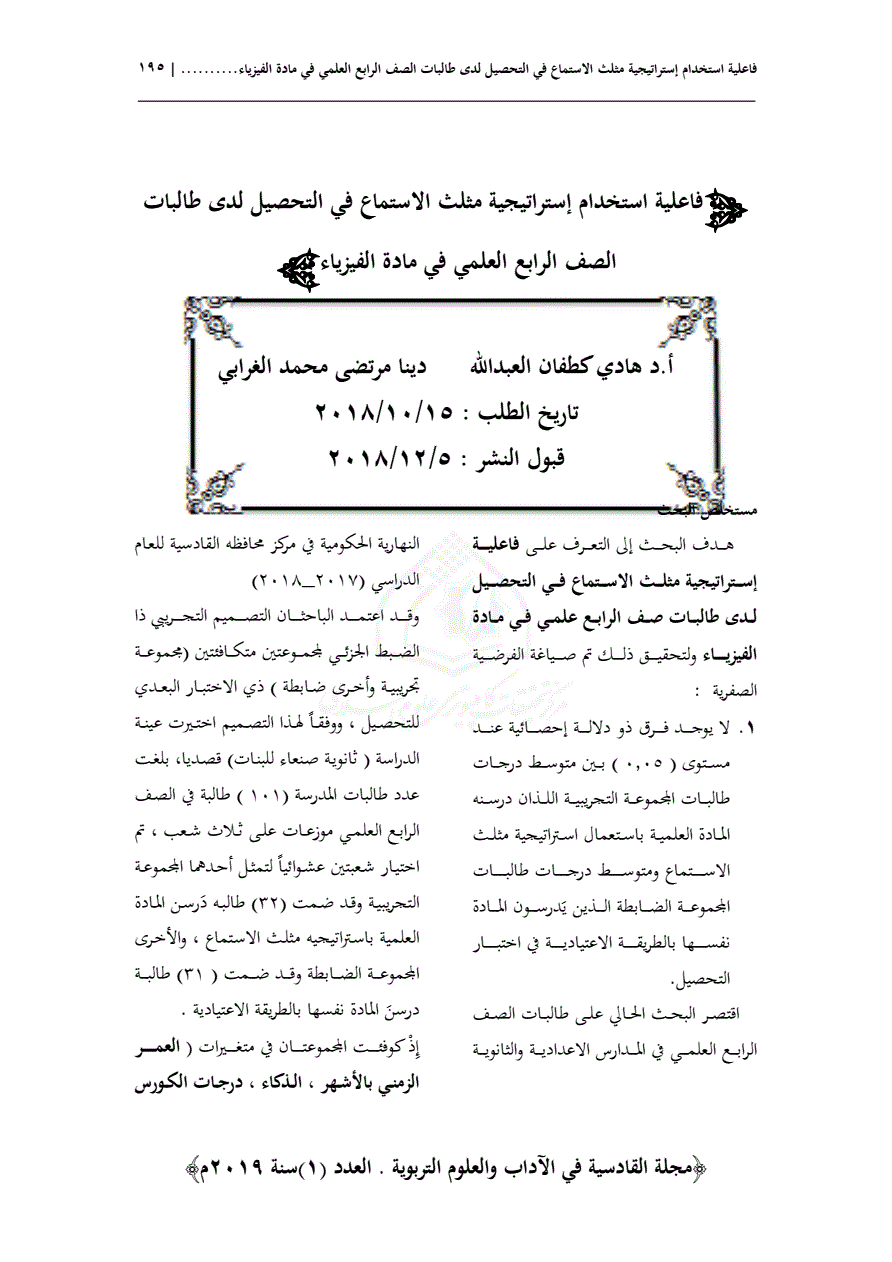 فاعلية استخدام إستراتيجية مثلث الاستماع في التحصيل لدى طالبات الصف الرابع العلمي في مادة الفيزياء.......... | ١٩٥
فاعلية استخدام إستراتيجية مثلث الاستماع في التحصيل لدى طالبات
الصف الرابع العلمي في مادة الفيزياء
أ.د هادي كطفان العبدالله دينا مرتضى محمد الغرابي
تاريخ الطلب : ٢٠١٨/١٠/١٥
قبول النشر : ٢٠١٨/١٢/٥
مستخلص البحث
هدف البحث إلى التعرف على فاعلية
إستراتيجية مثلث الاستماع في التحصيل
لدى طالبات صف الرابع علمي في مادة
الفيزياء ولتحقيق ذلك تم صياغة الفرضية
الصفرية :
١. لا يوجد فرق ذو دلالة إحصائية عند
مستوى ( ٠,٠٥ ) بين متوسط درجات
طالبات المجموعة التجريبية اللذان درسنه
المادة العلمية باستعمال استراتيجية مثلث
الاستماع ومتوسط درجات طالبات
المجموعة الضابطة الذين يَدرسون المادة
نفسها بالطريقة الاعتيادية في اختبار
التحصيل.
اقتصر البحث الحالي على طالبات الصف
الرابع العلمي في المدارس الاعدادية والثانوية
النهارية الحكومية في مركز محافظه القادسية للعام
الدراسي (٢٠١٧_٢٠١٨)
وقد اعتمد الباحثان التصميم التجريبي ذا
الضبط الجزئي لمجموعتين متكافئتين (مجموعة
تجريبية وأخرى ضابطة ) ذي الاختبار البعدي
للتحصيل ، ووفقاً لهذا التصميم اختيرت عينة
الدراسة ( ثانوية صنعاء للبنات) قصديا، بلغت
عدد طالبات المدرسة (١٠١ ) طالبة في الصف
الرابع العلمي موزعات على ثلاث شعب ، تم
اختيار شعبتين عشوائياً لتمثل أحدهما المجموعة
التجريبية وقد ضمت (٣٢) طالبه دَرسن المادة
العلمية باستراتيجيه مثلث الاستماع ، والأخرى
المجموعة الضابطة وقد ضمت ( ٣١) طالبة
درسنَ المادة نفسها بالطريقة الاعتيادية .
إذْ كوفئت المجموعتان في متغيرات ( العمر
الزمني بالأشهر ، الذكاء ، درجات الكورس
﴿مجلة القادسية في الآداب والعلوم التربوية . العدد (١)سنة ٢٠١٩م﴾